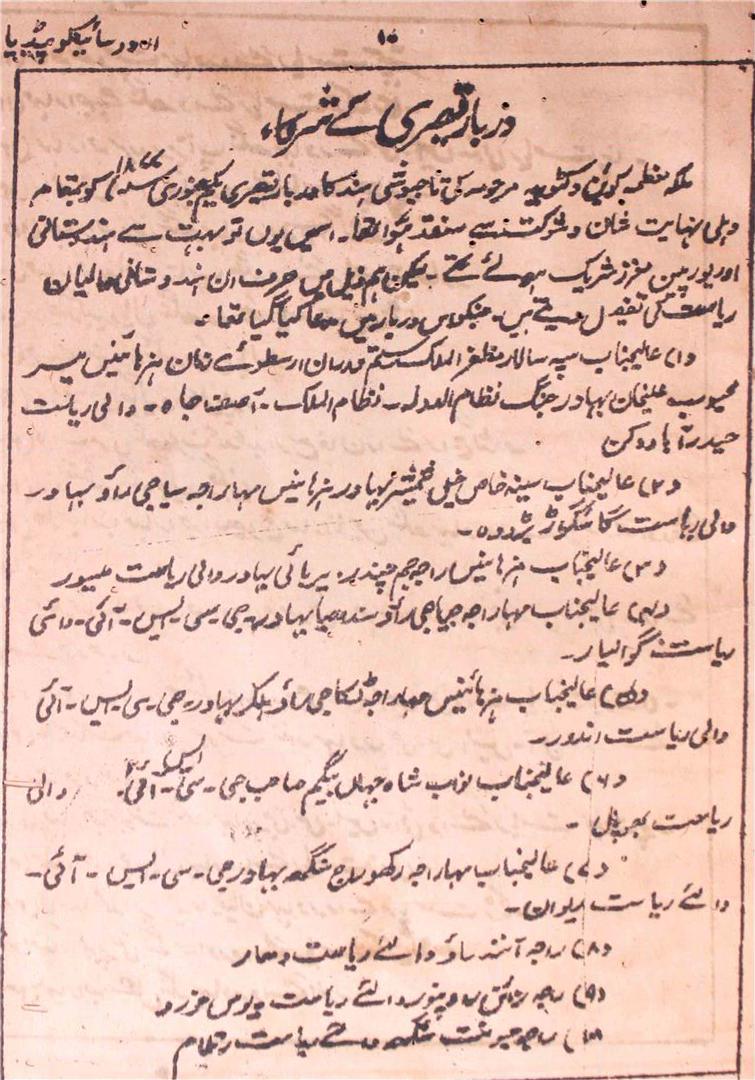 ۱۰
اردو سائیکلوپیڈیا
دربار قیصری کے شرکاء
ملکہ معظمہ کوئن وکٹوریہ مرحومہ کی تاجپوشی ہند کا دربار قیصری یکم جنوری ۱۸۷۷ء کو بمقام
دہلی نہایت شان و شوکت سے منعقد ہوا تھا۔ اسمیں یوں تو بہت سے ہندوستانی
اور یورپین معزز شریک ہوئے تھے۔ لیکن ہم ذیل میں صرف ان ہندوستانی والیان
ریاست کی تفصیل دیتے ہیں۔ جنکو اس دربار میں مدعو کیا گیا تھا۔
(۱) عالیجناب سپہ سالار مظفر الملک رستم دوران ارسطوئے زمان ہزہائینس میر
محبوب علیخان بہادر جنگ نظام الدولہ۔ نظام الملک۔ آصف جاہ۔ والی ریاست
حیدرآباد دکن
(۲) عالیجناب سینہ خاص خیل شمشیر بہادر ہزہائینس مہاراجہ سیاجی راؤ بہادر
والی ریاست گائیکواڑ بڑودہ۔
(۳) عالیجناب ہزہائینس راجہ چم چندر بہادر والی ریاست میسور
(۴) عالیجناب مہاراجہ جیاجی راؤ سندھیا بہادر۔ جی۔ سی۔ ایس۔ آئی۔ والئی
ریاست گوالیار۔
(۵) عالیجناب ہزہائینس مہاراجہ ٹکاجی راؤ ہلکر بہادر۔ جی۔ سی۔ ایس۔ آئی
والی ریاست اندور۔
(۶) عالیجناب نواب شاہ جہاں بیگم صاحب جی۔ سی۔ ایس۔ آئی۔ والی
ریاست بھوپال۔
(۷) عالیجناب مہاراجہ رگھوراج سنگھ بہادر جی۔ سی۔ ایس۔ آئی۔
والئے ریاست ریوان۔
(۸) راجہ آنند راؤ والئے ریاست دھار
(۹) راجہ والئے ریاست دیوس خورد
(۱۰) راجہ رنجیت سنگھ والئے ریاست رتلام